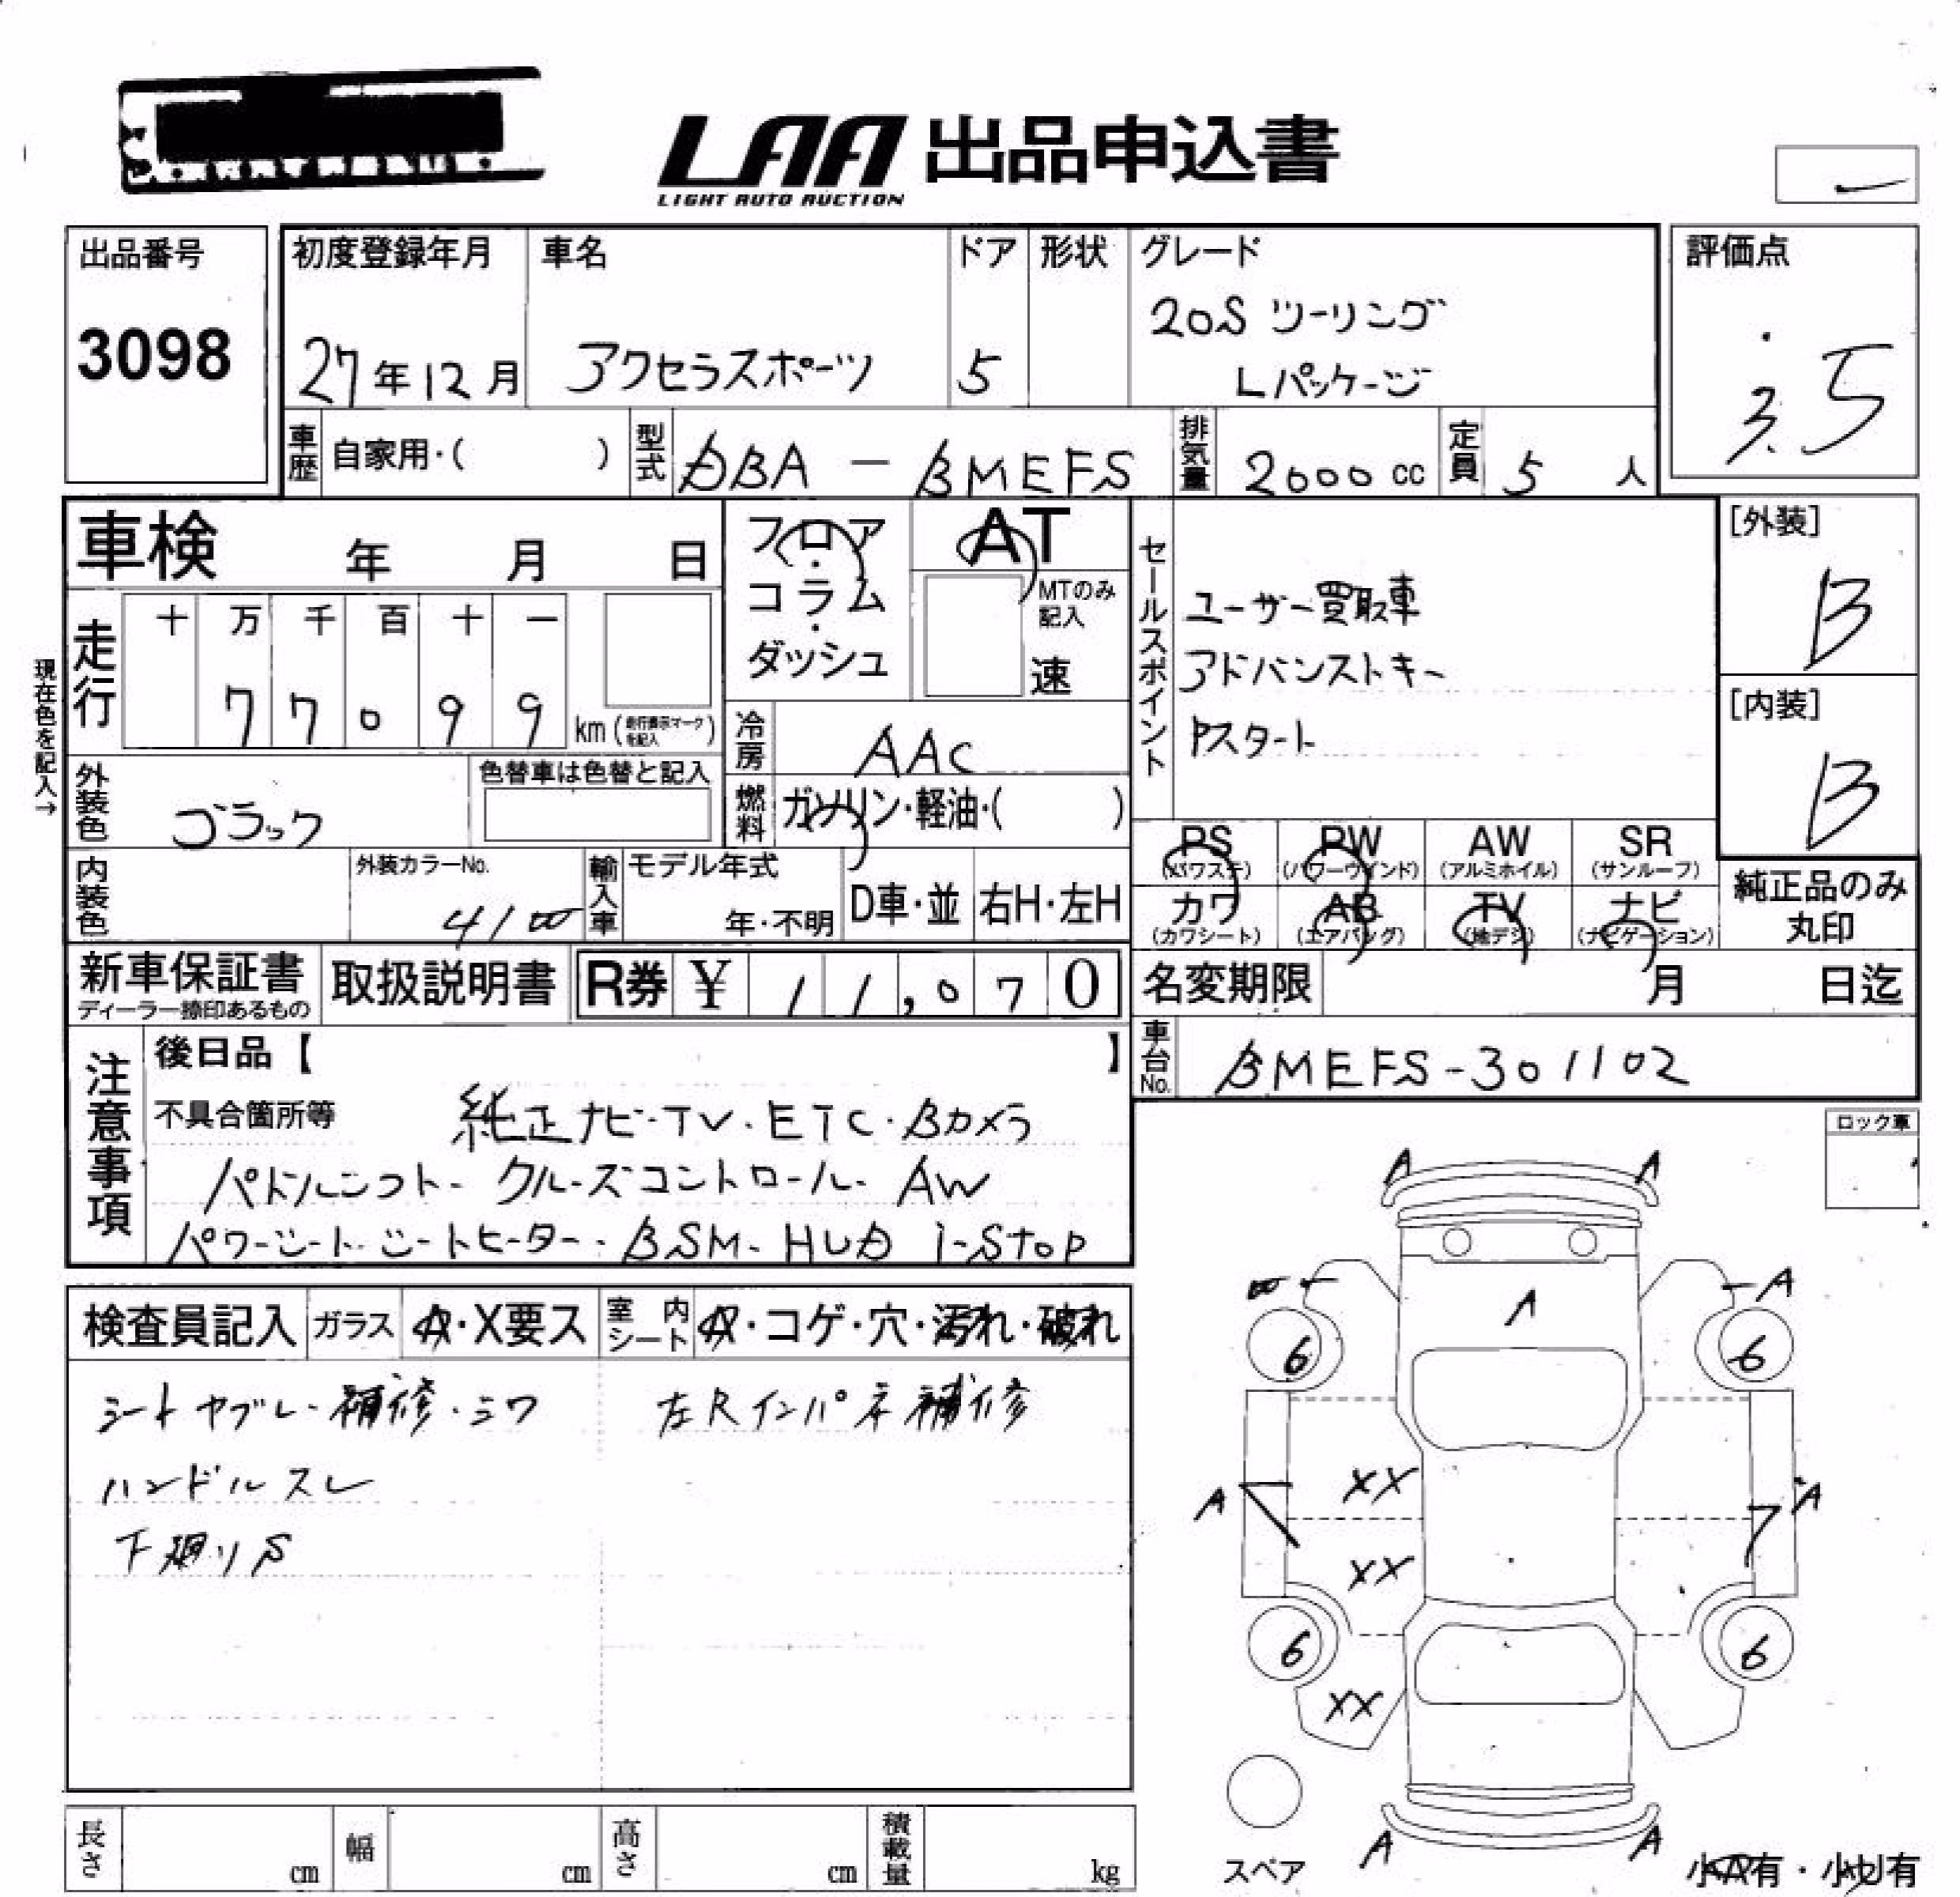 LAA 出品申込書
LIGHT AUTO AUCTION
出品番号
3098
初度登録年月
27年12月
車名
アクセラスポーツ
ドア
5
形状
グレード
20S ツーリング
Lパッケージ
評価点
3.5
車歴
自家用・( )
型式
DBA － BMEFS
排気量
2000 cc
定員
5 人
車検 年 月 日
フロア・コラム・ダッシュ
AT
MTのみ記入
速
セールスポイント
ユーザー買取車
アドバンストキー
Pスタート
[外装]
B
[内装]
B
現在色を記入→
走行
十 万 千 百 十 一
7 7 0 9 9
km (走行表示マークを記入)
冷房
AAC
外装色
ブラック
色替車は色替と記入
燃料
ガソリン・軽油・( )
PS (パワステ)
PW (パワーウインド)
AW (アルミホイル)
SR (サンルーフ)
カワ (カワシート)
AB (エアバッグ)
TV (地デジ)
ナビ (ナビゲーション)
純正品のみ丸印
内装色
外装カラーNo.
輸入車
モデル年式
年・不明
D車・並
右H・左H
新車保証書
取扱説明書
R券 ¥ 11,070
名変期限 月 日迄
車台No.
BMEFS-301102
注意事項
後日品【 】
不具合箇所等
純正ナビ・TV・ETC・Bカメラ
パドルシフト・クルーズコントロール・AW
パワーシート・シートヒーター・BSM・HUD i-stop
ロック車
検査員記入
ガラス
A・X要ス
室内シート
A・コゲ・穴・汚れ・破れ
シートヤブレ・補修・シワ
左Rインパネ補修
ハンドルスレ
下廻りS
A A
A
A
6 6
XX
A A
XX
6 6
XX
A A
スペア
小A有・小U有
長さ cm
幅 cm
高さ cm
積載量 kg